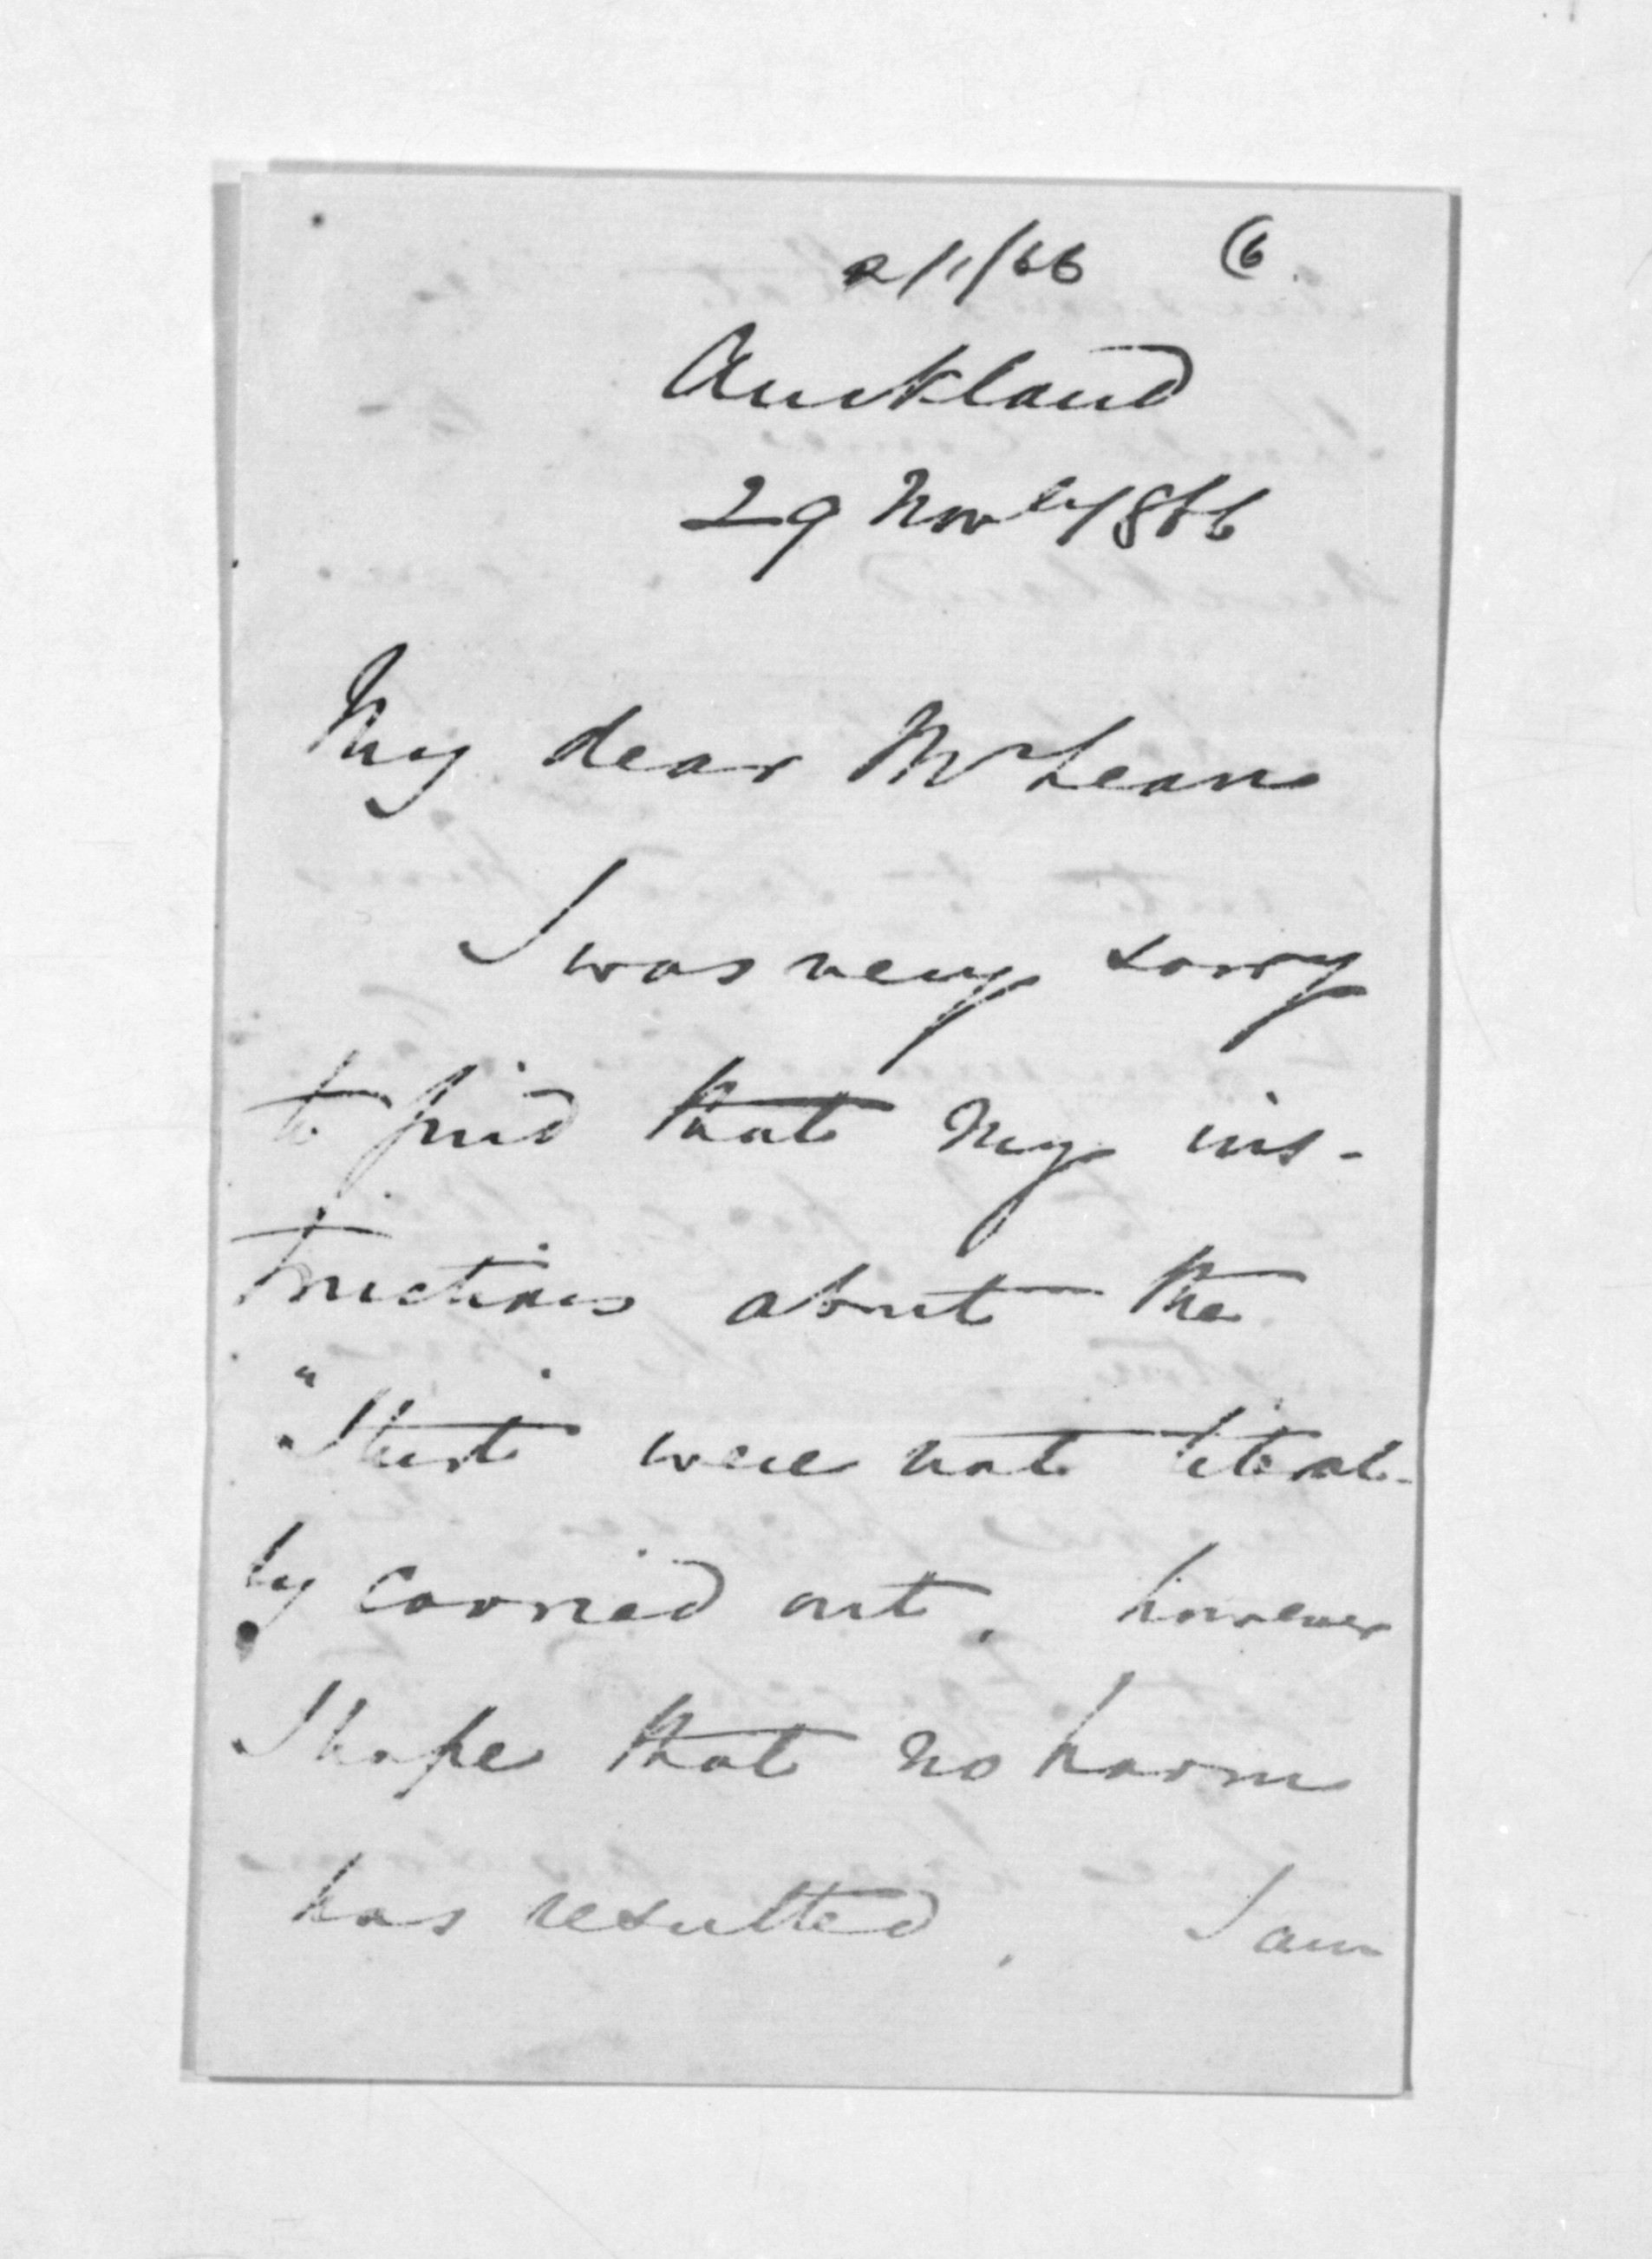 2/1/66 (6
Auckland
29 Novbr 1866
My dear McLean
I was very sorry
to find that my ins-
tructions about the
"Sturt" were not literal-
ly carried out, however
I hope that no harm
has resulted. I am